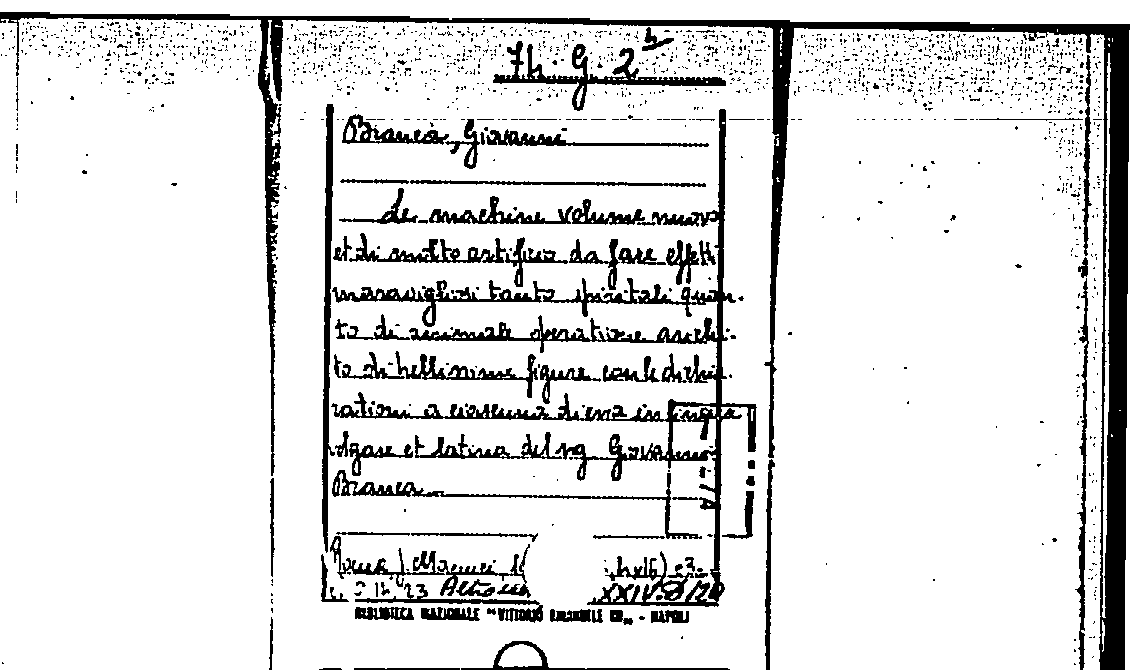 74. G. 2
Branca, Giovanni
Le machine volume nuovo
et di molto artificio da fare effetti
maravigliosi tanto spiritali quan-
to di animale operatione archi-
to di bellissime figure con le dichia-
rationi a ciascuna di esse in lingua
volgare et latina del sig. Giovanni
Branca
Roma
BIBLIOTECA NAZIONALE "VITTORIO EMANUELE III„ - NAPOLI